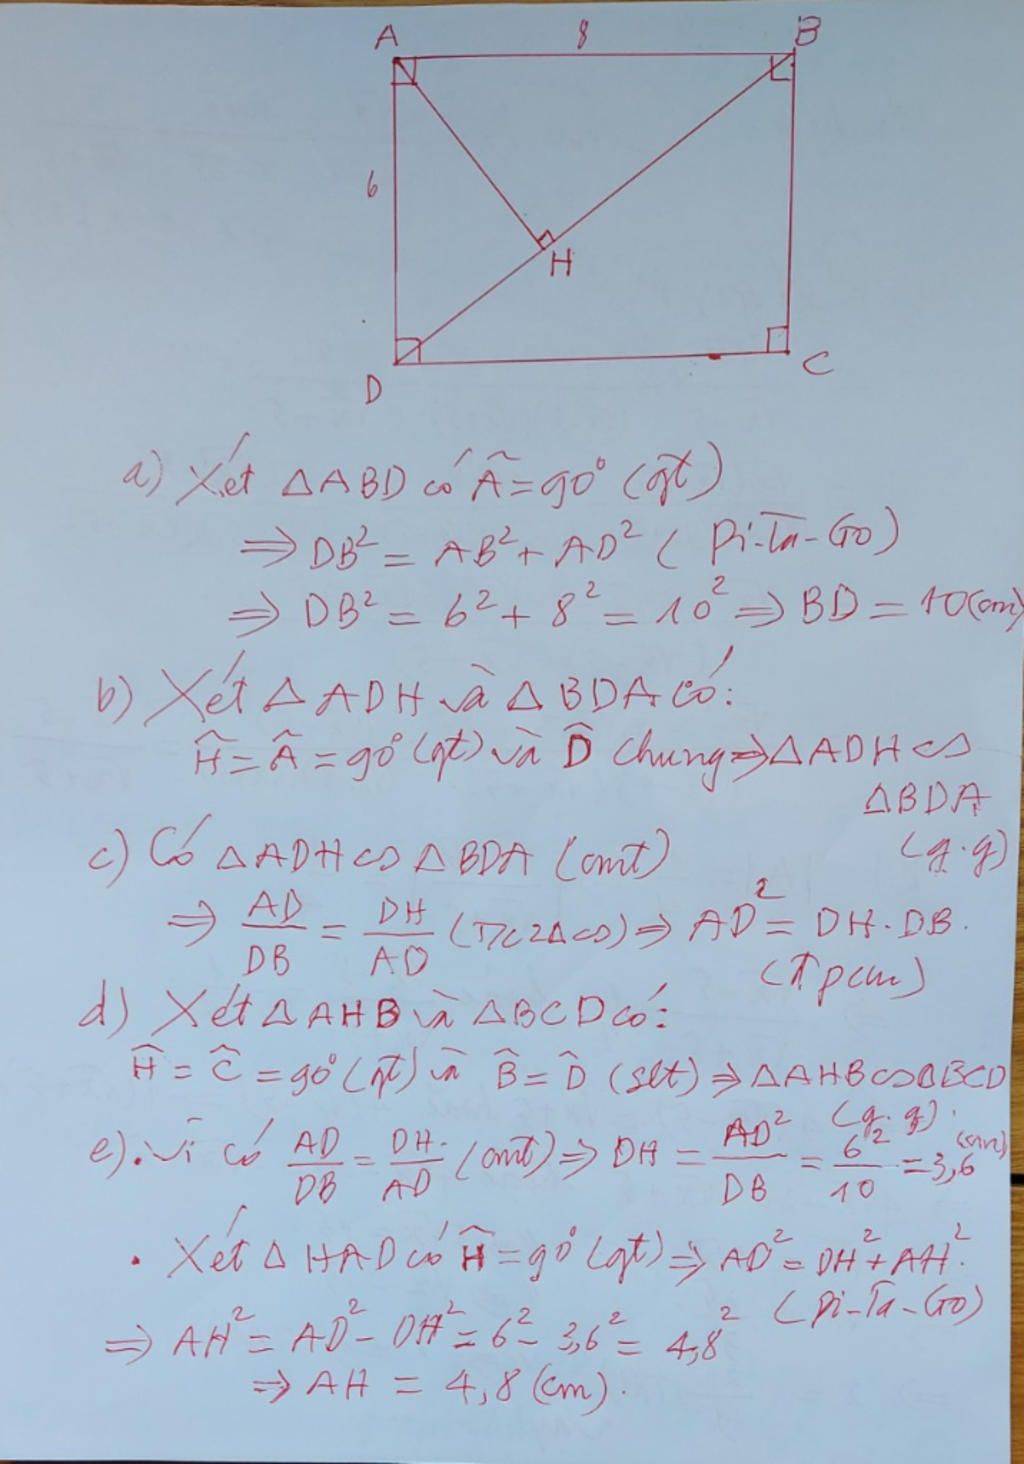 A 8 B
6
H
D C
a) Xét ΔABD có Â = 90° (gt)
⇒ DB² = AB² + AD² (Pi-Ta-Go)
⇒ DB² = 6² + 8² = 10² ⇒ BD = 10(cm)
b) Xét ΔADH và ΔBDA có:
Ĥ = Â = 90° (gt) và D̂ chung ⇒ ΔADH ∽
ΔBDA
(g.g)
c) Có ΔADH ∽ ΔBDA (cmt)
⇒ AD/DB = DH/AD (T/c 2Δ∽) ⇒ AD² = DH.DB.
(đpcm)
d) Xét ΔAHB và ΔBCD có:
Ĥ = Ĉ = 90° (gt) và B̂ = D̂ (slt) ⇒ ΔAHB ∽ ΔBCD
(g.g).
e) . Vì có AD/DB = DH/AD (cmt) ⇒ DH = AD²/DB = 6²/10 = 3,6 (cm)
. Xét ΔHAD có Ĥ = 90° (gt) ⇒ AD² = DH² + AH².
(Pi-Ta-Go)
⇒ AH² = AD² - DH² = 6² - 3,6² = 4,8²
⇒ AH = 4,8 (cm).